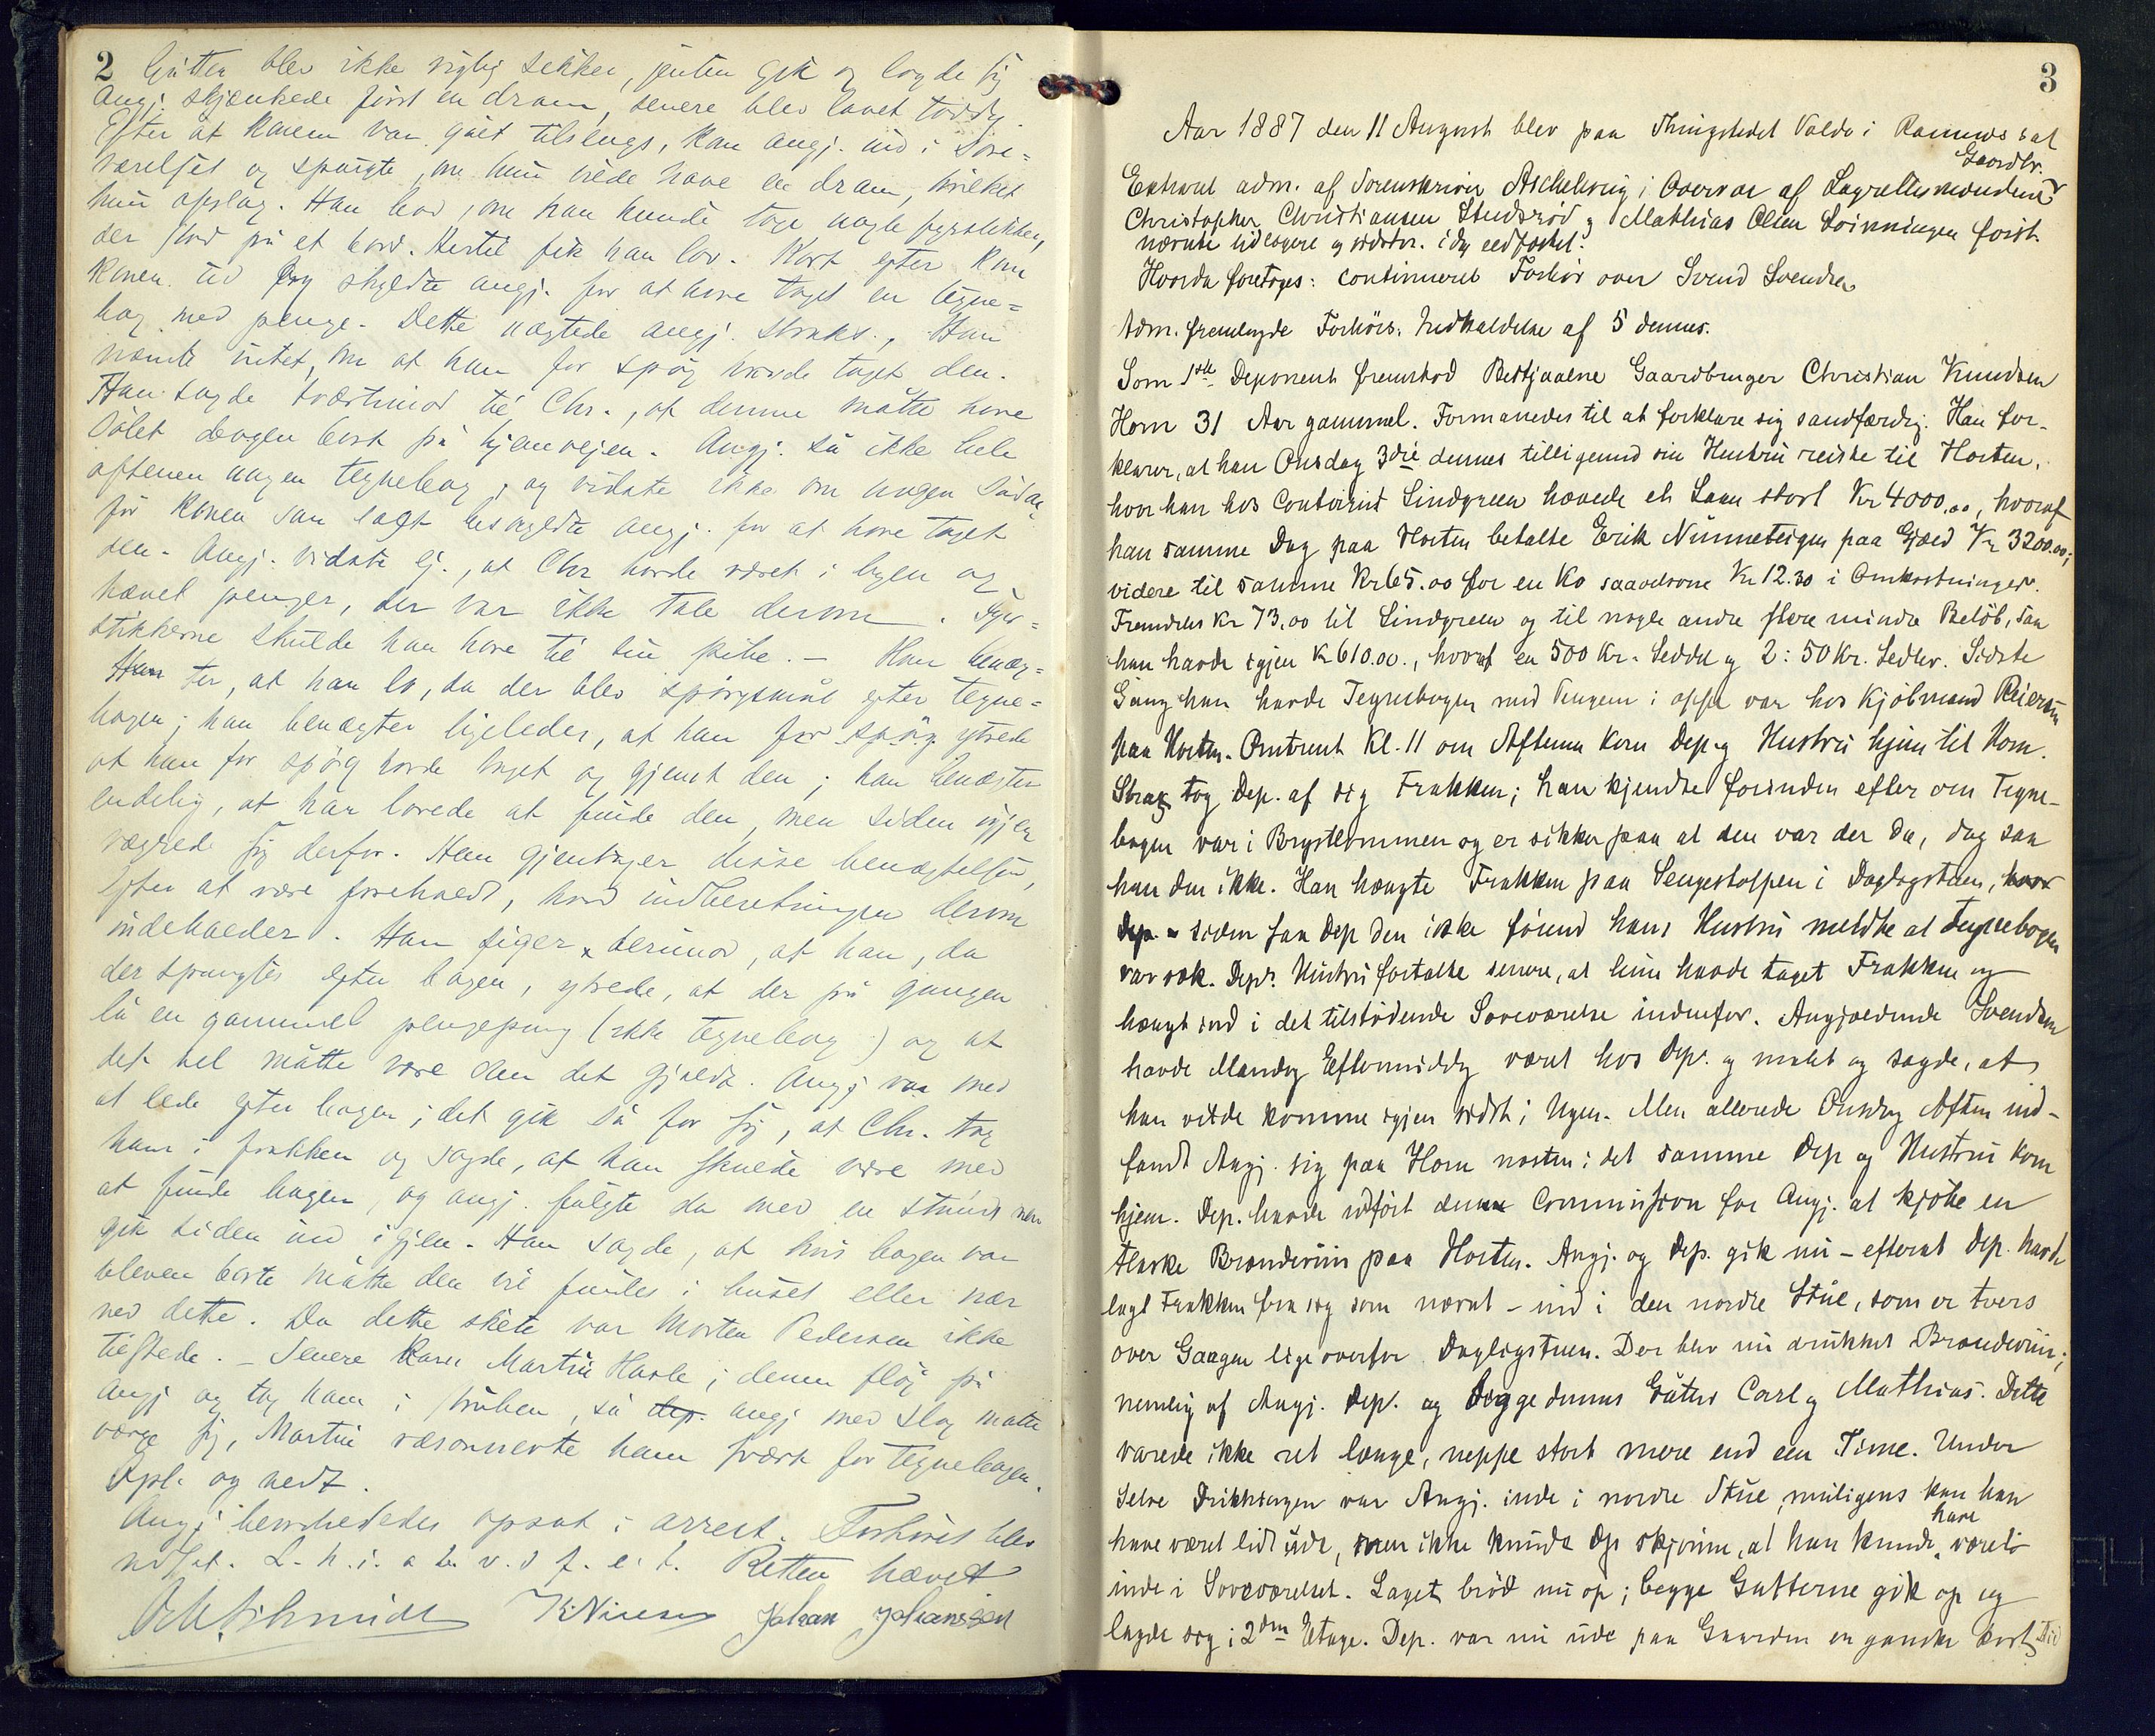 2 Gutten blev ikke rigtig sikker, jenten gik og lagde sig
Angj. skjænkede först en dram, senere blev lavet toddy.
Efter at konen var gået tilsengs, kom angj. ind i Sove=
værelset og spurgte, om hun vilde have en dram, hvilket
hun afslog. Han bad, om han kunde tage nogle fyrstikker,
der stod på et bord. Hertil fik han lov. Kort efter kom
konen ud og skyldte angj. for at have taget en tegne=
bog med penge. Dette nægtede angj. straks., Han
nævnte intet, om at han for spög havde taget den.
Han sagde tvertimod til Chr., at denne måtte have
dålet bogen bort på hjemvejen. Angj. så ikke hele
aftenen nogen tegnebog, og vidste ikke om nogen sådan
för konen som sagt beskyldte angj. for at have taget
den. Angj. vidste ej., at Chr havde været i byen og
hævet penger, der var ikke tale derom. Fyr=
stikkerne skulde han have til sin pibe. — Han benæg=
ter, at han lo, da der blev spörgsmål efter tegne=
bogen; han benægter ligeledes, at han for spög ytrede
at han for spög havde taget og gjemt den; han benægter
endelig, at han lovede at finde den, men siden igjen
vægrede sig derfor. Han gjentager disse benægtelser,
efter at være foreholdt, hvad indberetningen derom
indeholder. Han siger derimod, at han, da
der spurgtes efter bogen, ytrede, at der på gangen
lå en gammel pengepung (ikke tegnebog) og at
det vel måtte være den det gjaldt. Angj var med
at lede efter bogen; det gik så for sig, at Chr. tog
ham i frakken og sagde, at han skulde være med
at finde bogen, og angj. fulgte da med en stund men
gik siden ind igjen. Han sagde, at hvis bogen var
bleven borte måtte den vel findes i huset eller nær
ved dette. Da dette skete var Morten Pedersen ikke
tilstede. — Senere kom Martin Hasle; denne flög på
angj og tog ham i struben, så dep. angj med slag måtte
værge sig, Martin ræsonnerte ham svært for tegnebogen.
Oplæst og vedt.
Angj beordredes opsat i arrest. Forhöret blev
udsat. L. h. i. a b. v. d f. e. t. Retten hævet
Schmidt KNilsen Johan Johanssen
3
Aar 1887 den 11 August blev paa Thingstedet Valdo i Ramnes sat
Extraret adm. af Sorenskriver Aschehoug i Overvær af Lagrettesmændene Gaardbr.
Christopher Christiansen Studsrød og Mathias Olsen Løvningen først
nævnte tidligere og sidstn. idag eedfæstet.
Hvorda foretoges: continueret Forhör over Svend Svendsen
Adm. fremlagde Forhörs. Indkaldelse af 5 dennes.
Som 1ste Deponent fremstod Bestjaalne Gaardbruger Christian Knudsen
Horn 31 Aar gammel. Formanedes til at forklare sig sandfærdig. Han for-
klarer, at han Onsdag 3die dennes tilligemed sin Hustru reiste til Horten,
hvor han hos Contorist Lindgreen hævede et Laan stort Kr 4000,00, hvoraf
han samme Dag paa Horten betalte Erik Nunneteigen paa Gjæld Kr 3200.00;
videre til samme Kr 65.00 for en Ko saavelsom Kr 12.30 i Omkostninger.
Fremdeles Kr 73,00 til Lindgreen og til nogle andre flere mindre Belöb, saa
han havde igjen Kr 610.00., hvoraf en 500 Kr. Seddel og 2: 50 Kr. Sedler. Sidste
Gang han havde Tegnebogen med Pengene i oppe var hos Kjöbmand Reiersen
paa Horten. Omtrent Kl. 11 om Aftenen kom Dep. og Hustru hjem til Horn.
Strax tog Dep. af sig Frakken; han kjendte forinden efter om Tegne-
bogen var i Brystlommen og er sikker paa at den var der da, dog saa
han den ikke. Han hængte Frakken paa Sengestolpen i Dagligstuen, hvor
Dep. siden saa Dep den ikke förend hans Hustru meldte at Tegnebogen
var væk. Deps. Hustru fortalte senere, at hun havde taget Frakken og
hængt ind i det tilstødende Soveværelse indenfor. Angjældende Svendsen
havde Mandag Eftermiddag været hos Dep. og malet og sagde, at
han vilde komme igjen sidst i Ugen. Men allerede Onsdag Aften ind-
fandt Angj. sig paa Horn næsten i det samme Dep og Hustru kom
hjem. Dep. havde udfört den Commission for Angj. at kjöbe en
Flaske Brændeviin paa Horten. Angj. og Dep. gik nu – efterat Dep. havde
lagt Frakken fra sig som nævnt – ind i den nordre Stue, som er tvers
over Gangen lige overfor Dagligstuen. Der blev nu drukket Brændeviin;
nemlig af Angj. Dep. og begge dennes Gutter Carl og Mathias. Dette
varede ikke ret længe, neppe stort mere end een Time. Under
selve Drikkingen var Angj. inde i nordre Stue, muligens kan han
have været lidt ude, men ikke kunde Dep skjønne, at han kunde have været
inde i Soveværelset. Laget bröd nu op; begge Gutterne gik op og
lagde sig i 2den Etage. Dep. var nu ude paa Gaarden en ganske kort Tid